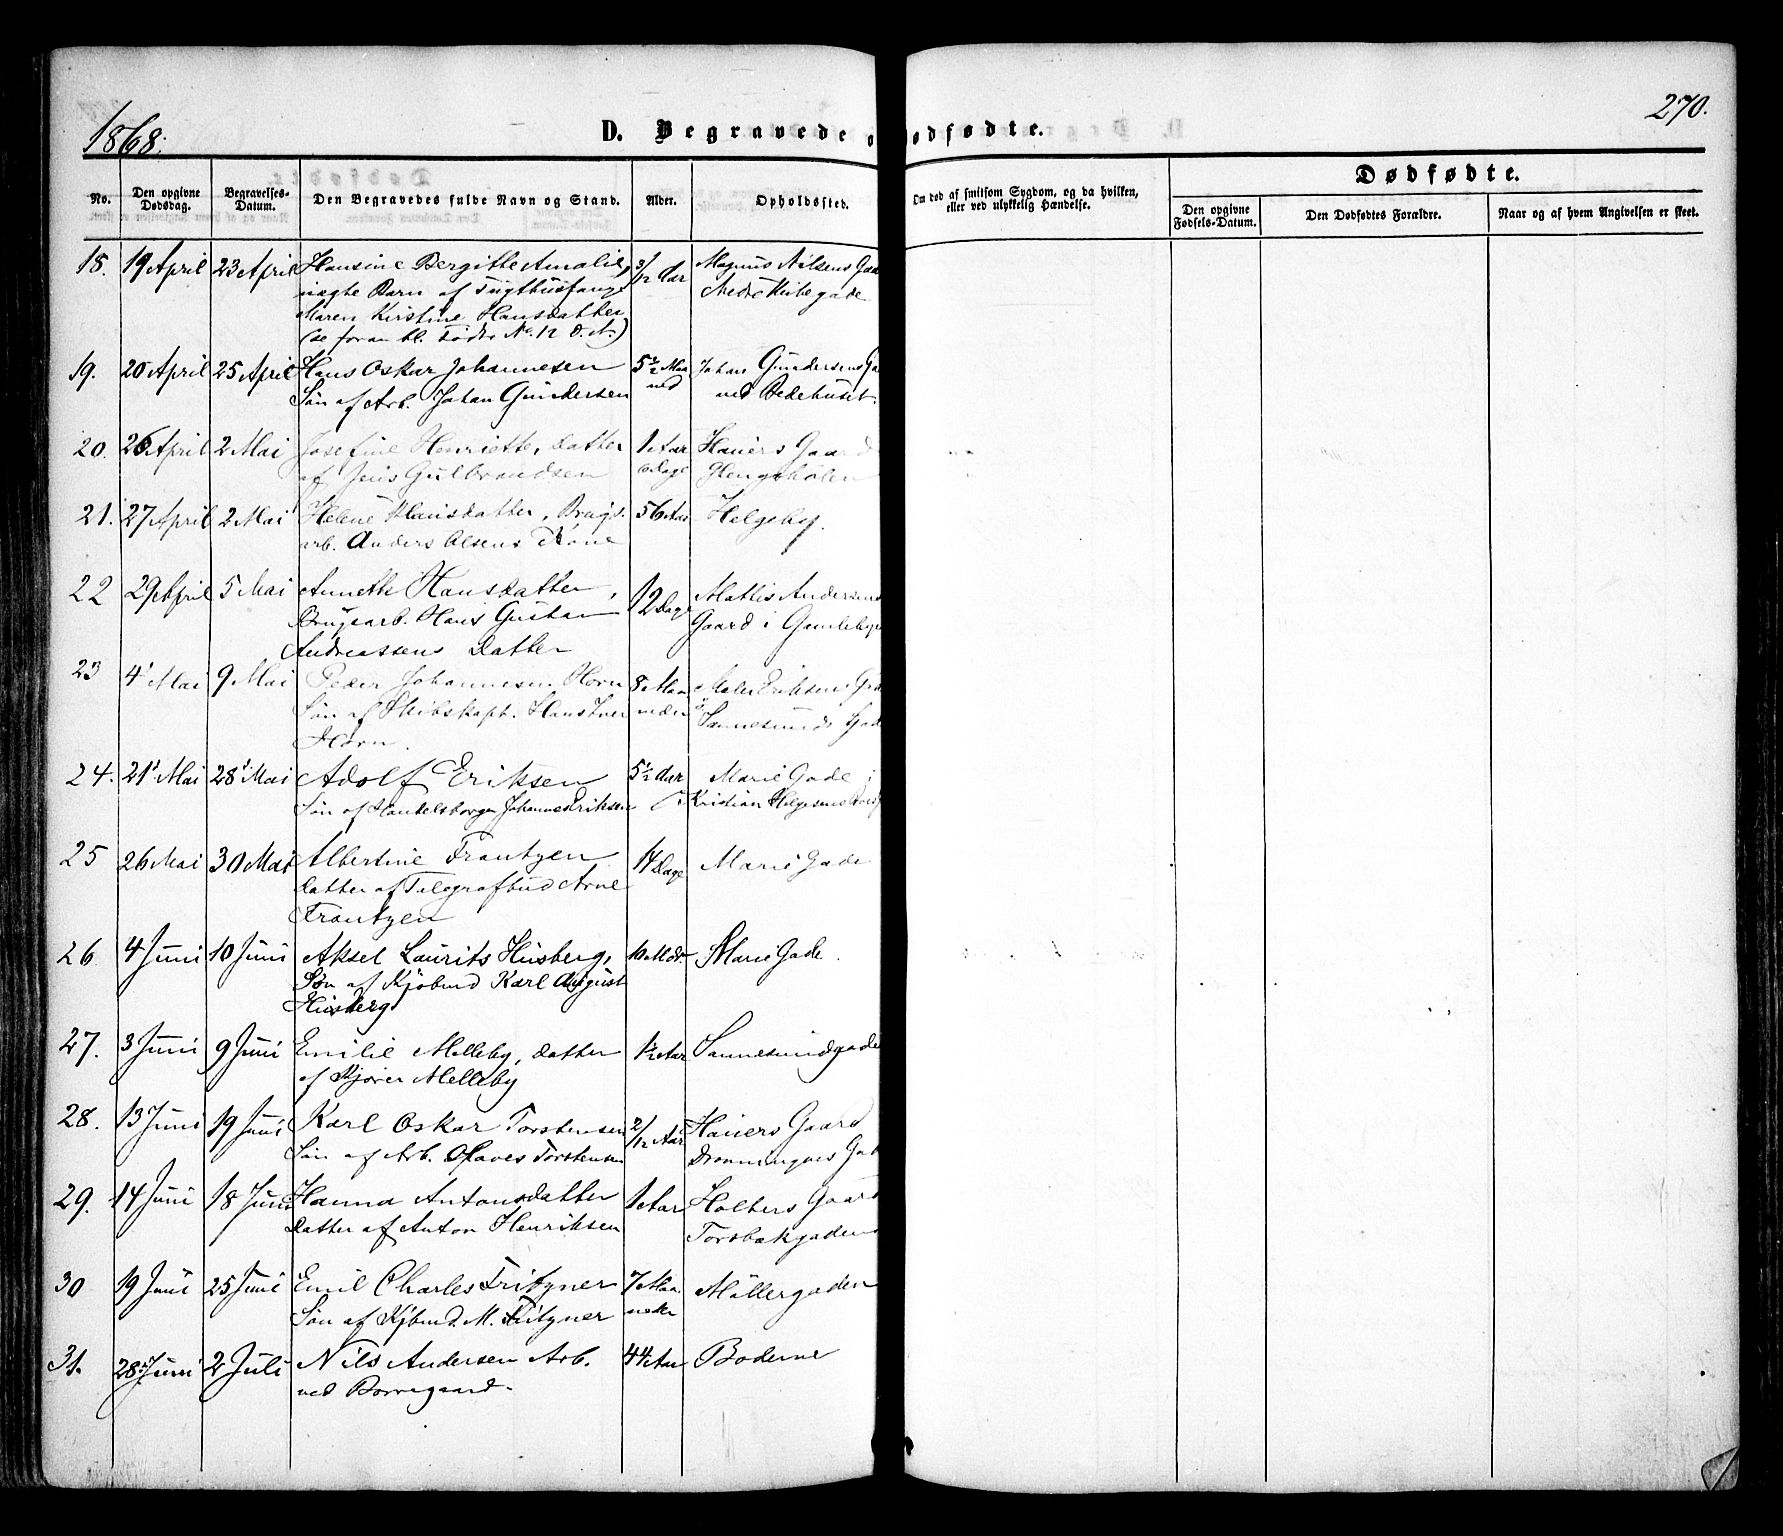 1868.
D. Begravede o
ødfødte.
270.
No.
Den opgivne
Dødsdag.
Begravelses-
Datum.
Den Begravedes fulde Navn og Stand.
Alder.
Opholdssted.
Om død af smitsom Sygdom, og da hvilken,
eller ved ulykkelig Hændelse.
Dødfødte.
Den opgivne
Fødsels-Datum.
Den Dødfødtes Forældre.
Naar og af hvem Angivelsen er skeet.
18. 19 April 23 April Hansine Bergitte Amalie, 3/12 Aar Magnus Nilsens Gaa
uægte Barn af Tugthusfange Nedre Kirkegade
Maren Kirstine Hansdatter
(se foran bl. Fødte No. 12 d. A.)
19. 20 April 25 April Hans Oskar Johannesen 5½ Maa Johan Gundersens Ga
Søn af Arb. Johan Gundersen ned ved Bedehuset.
20. 26 April 2 Mai Josefine Henriette, Datter 1 Aar Hauers Gaard
af Jens Gulbrandsen 6 Dage Glengshølen
21. 27 April 2 Mai Helene Hansdatter, Brugs- 56 Aar Helgeby.
arb. Anders Olsens Kone
22 29 April 5 Mai Annette Hansdatter, 12 Dage Mattis Andersens
Brugsarb. Hans Gustav Gaard i Gamlebyen
Andreassens Datter
23 4 Mai 9 Mai Peder Johannesen Horn 8 Maa Maler Eriksens Ga
Søn af Skibskapt. Hans Iver neder i Sannesunds Gad
Horn.
24. 21 Mai 28 Mai Adolf Eriksen 5½ Aar Marie Gade i
Søn af Handelsborger Johannes Eriksen Kristian Helgesens
25 26 Mai 30 Mai Albertine Frantzen 14 Dage Marie Gade
Datter af Telegrafbud Arne
Frantzen
26 4 Juni 10 Juni Aksel Laurits Husberg, 10 Mdr Marie Gade.
Søn af Kjøbmd Karl August
Husberg
27. 3 Juni 9 Juni Emilie Melleby, Datter 1½ Aar Sannesundgade
af Kjører Melleby
28. 13 Juni 19 Juni Karl Oskar Torstensen 2/12 Aar Hauers Gaard
Søn af Arb. Olaves Torstensen Dronningens Gad
29. 14 Juni 18 Juni Hanna Antonsdatter 1 Aar Holters Gaard
Datter af Anton Henriksen Torsbækgaden
30 19 Juni 25 Juni Emil Charles Fritzner 7 Maa Møllergaden
Søn af Kjbmd. M. Fritzner neder
31. 28 Juni 2 Juli Nils Andersen Arb. 44 Aar Boderne
ved Borregaard.